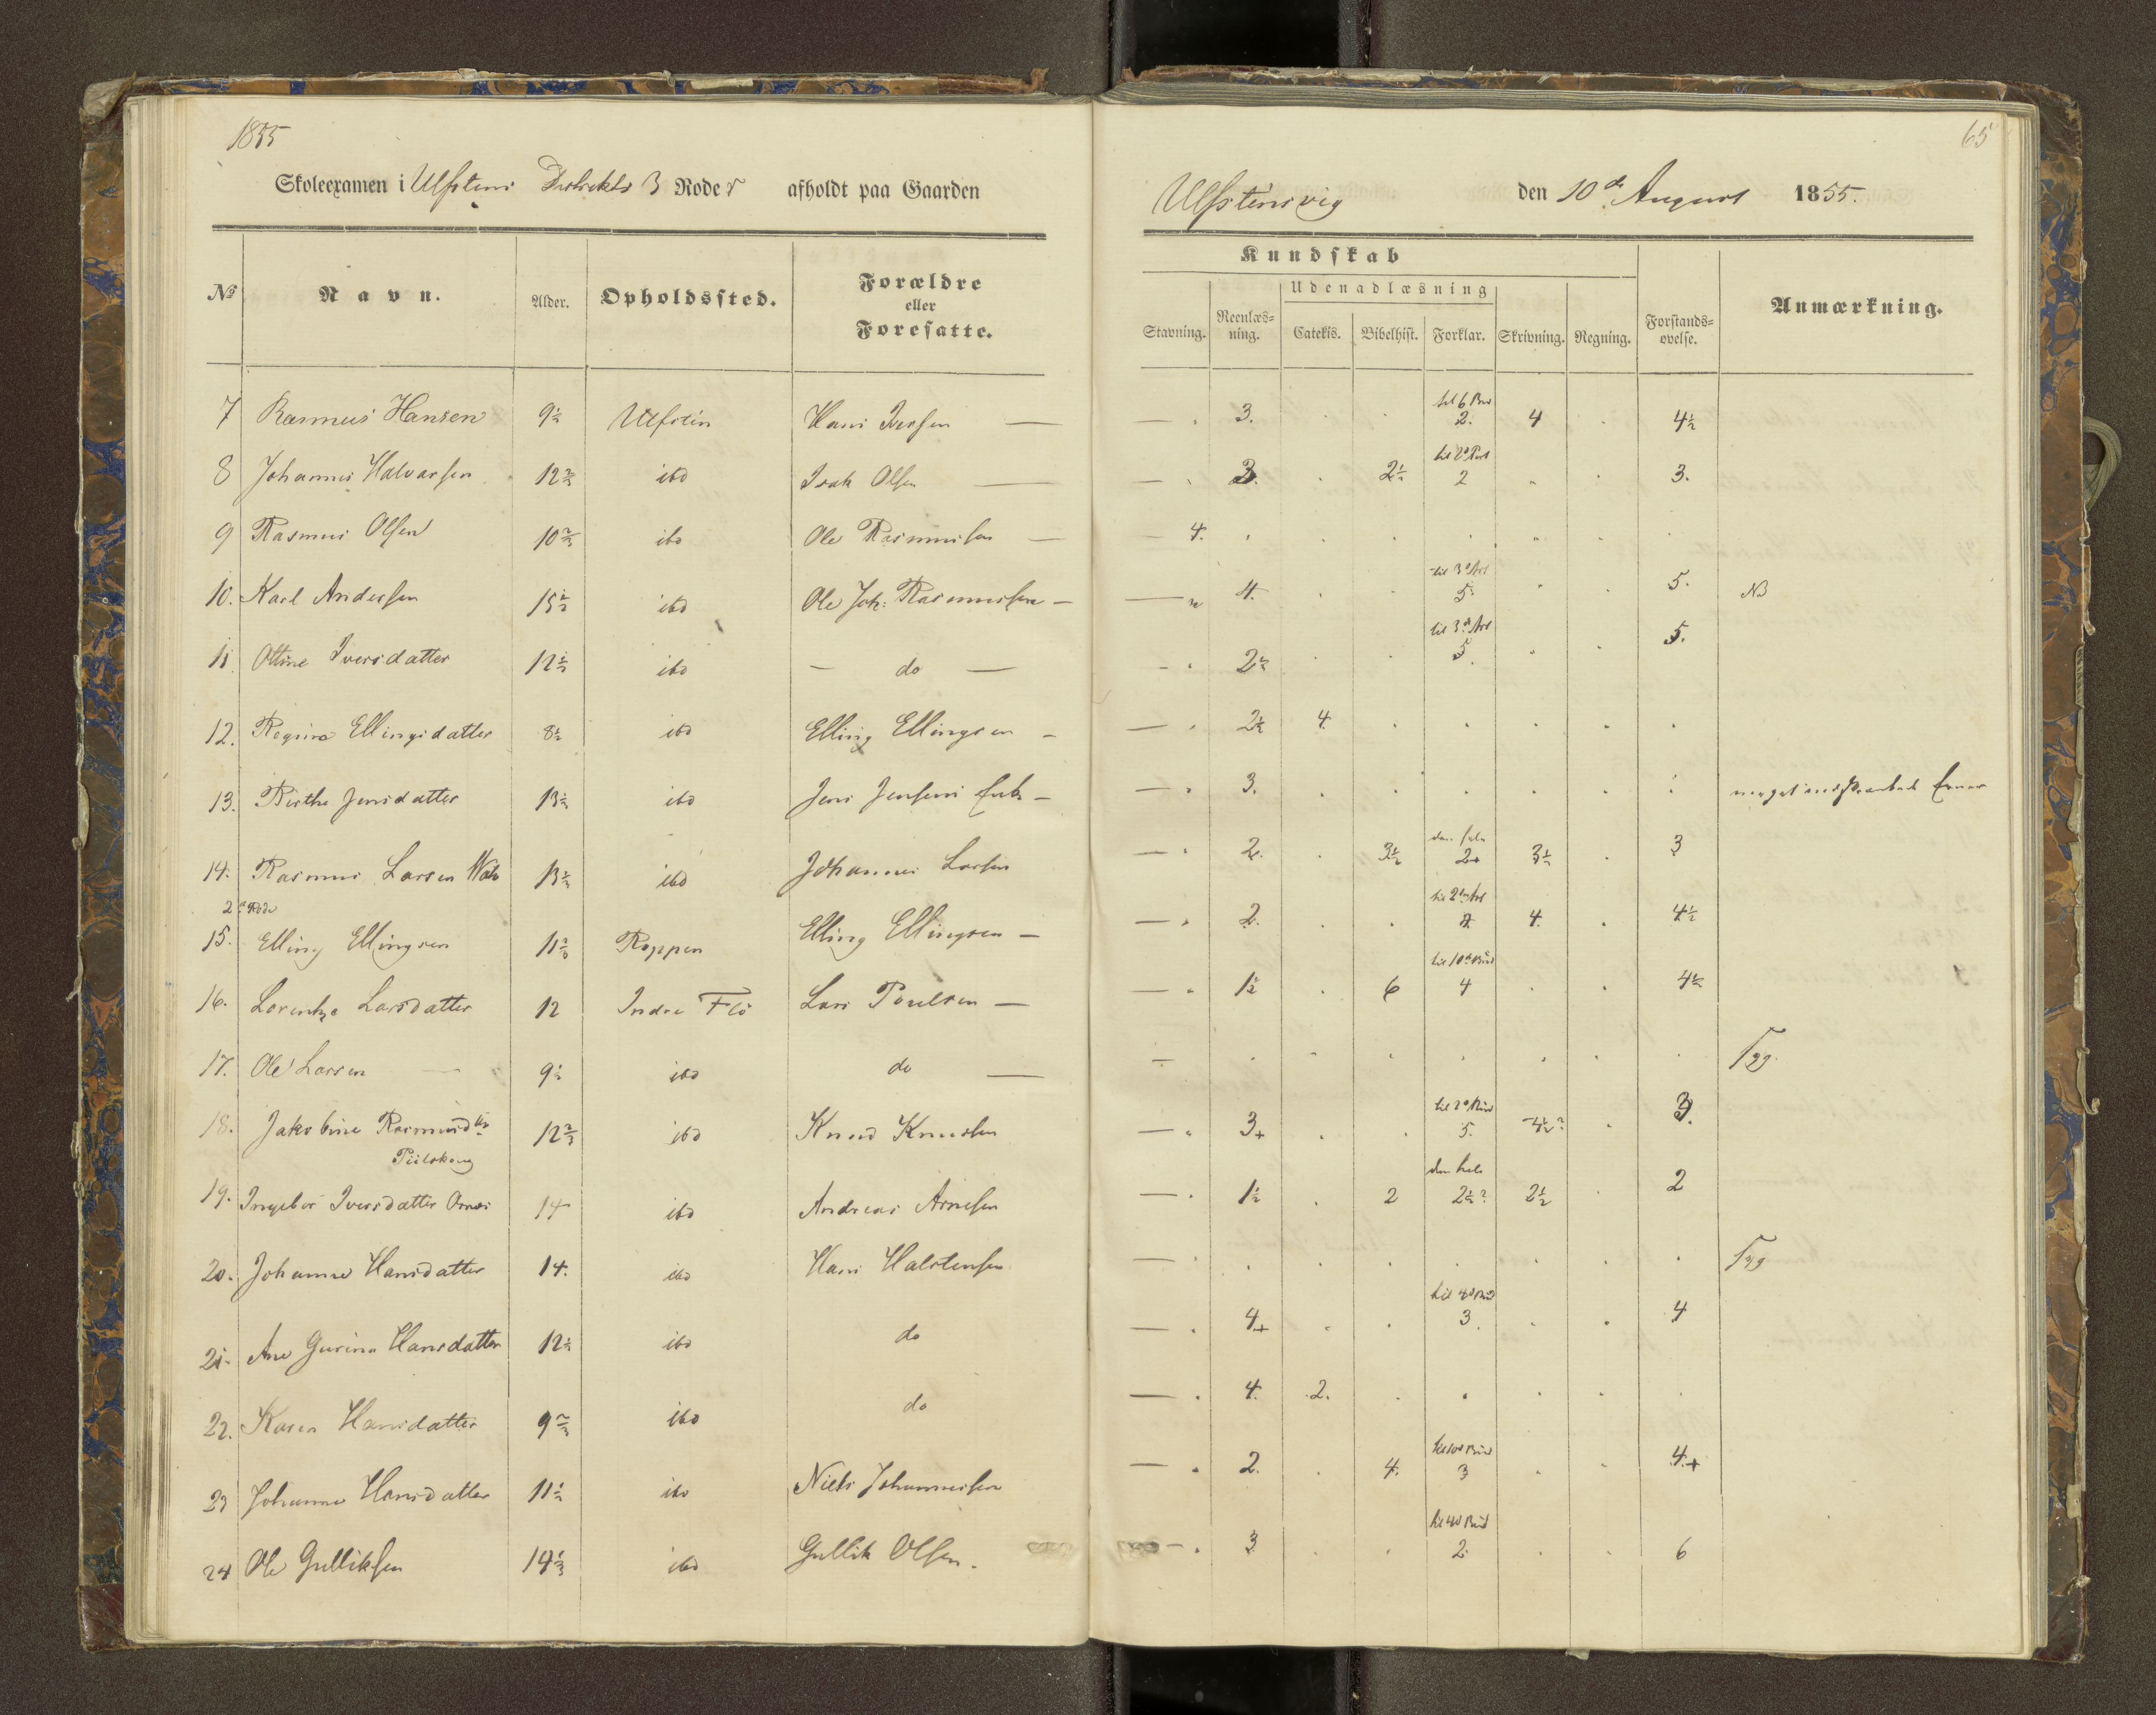 1855
65
Skoleexamen i Ulfstens Distrikts 3 Roder afholdt paa Gaarden
Ulfstensvig den 10de August 1855.
No Navn. Alder. Opholdssted. Forældre eller Foresatte.
Kundskab
Udenadlæsning
Stavning. Reenlæsning. Catekis. Bibelhist. Forklar. Skrivning. Regning. Forstandsøvelse. Anmærkning.
7 Rasmus Hansen 9½ Ulfstein Hans Iversen — — . 3. . . til 6 Bud 2. 4 . 4½
8 Johannes Halvarsen 12⅔ ibd Isak Olsen — — . 3. . 2½ 2 . . 3.
9 Rasmus Olsen 10⅔ ibd Ole Rasmussen — — 4. . . . . . .
10. Karl Andersen 15½ ibd Ole Joh: Rasmussen — — 4. . . til 3die Art 5. . . 5. NB
11 Oline Iversdatter 12½ ibd — do — — . 2½ . . til 3die Art 5. . . 5.
12. Regine Ellingsdatter 8½ ibd Elling Ellingsen — — . 2½ 4. . . . . .
13. Birthe Jensdatter 13½ ibd Jens Jensens Enke — — . 3. . . . . . .
14. Rasmus Larsen 13½ ibd Johannes Larsen — . 2. . 3½ 2+ 3½ . 3
2de Rode
15. Elling Ellingsen 11⅔ Roppen Elling Ellingsen — — . 2. . . til 2den Art 4. . 4½
16. Lorentze Larsdatter 12 Indre Flö Lars Poulsen — — . 1½ . 6 til 10de Bud 4 . . 4½
17. Ole Larsen — 9½ ibd do — — . . . . . . . Syg.
18. Jakobine Rasmusdtr 12⅔ ibd Knud Knudsen — . 3+ . . 5. . 3.
19. Ingebor Iversdatter 14 ibd Andreas Arnesen — . 1½ . 2 den hele 2½? 2½ . 2
20. Johanne Hansdatter 14. ibd Hans Halstensen — . . . . . . . Syg
21. Ane Gurine Hansdatter 12½ ibd do — . 4+ . . til 4d Bud 3. . . 4
22. Karen Hansdatter 9⅔ ibd do — . 4. .2. . . . . .
23 Johanne Hansdatter 11½ ibd Niels Johannessen — . 2. . 4. til 10d Bud 3 . . 4.+
24 Ole Gulliksen 14⅓ ibd Gullik Olsen. — . 3. . . til 4d Bud 2. . . 6